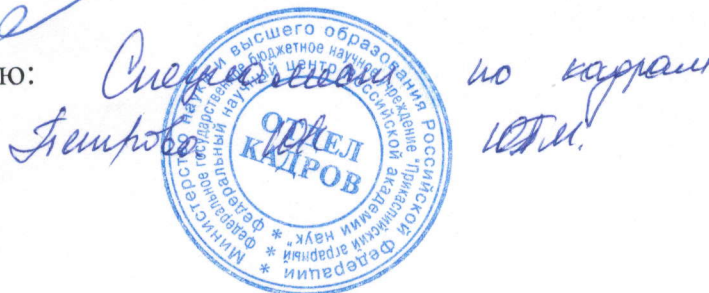 ю: Специалист по кадрам
Петрова Ю.М.
* Министерство науки и высшего образования Российской Федерации
* Федеральное государственное бюджетное научное учреждение "Прикаспийский аграрный
федеральный научный центр Российской академии наук" *
ОТДЕЛ
КАДРОВ